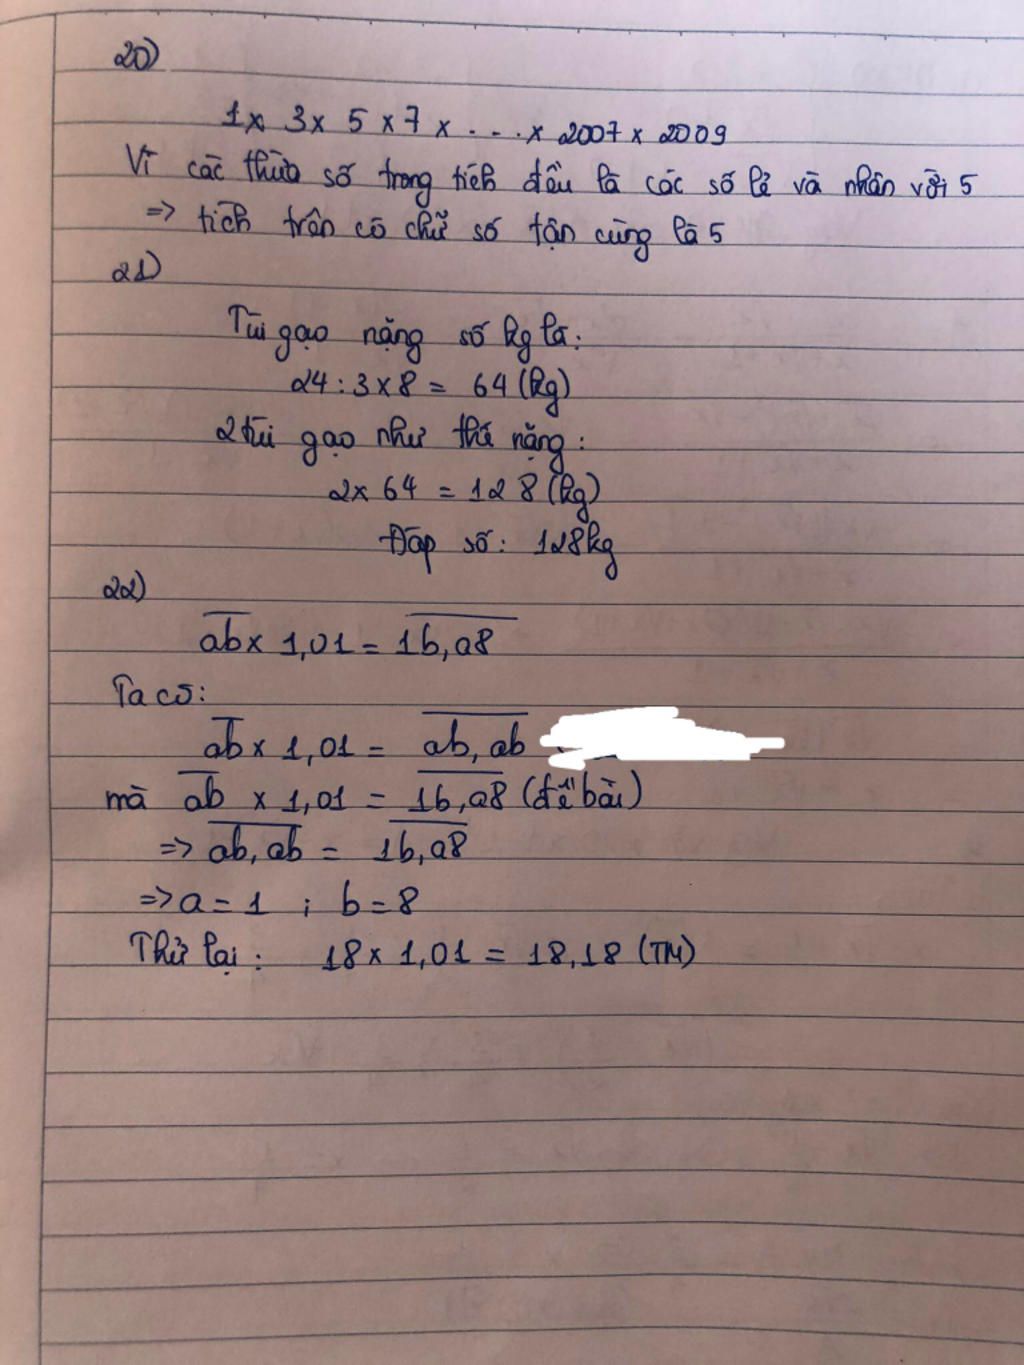 20)
1 x 3 x 5 x 7 x ... x 2007 x 2009
Vì các thừa số trong tích đều là các số lẻ và nhân với 5
=> tích trên có chữ số tận cùng là 5
21)
Túi gạo nặng số kg là:
24 : 3 x 8 = 64 (kg)
2 túi gạo như thế nặng:
2 x 64 = 128 (kg)
Đáp số: 128kg
22)
a̅b̅ x 1,01 = 1̅b̅,̅a̅8̅
Ta có:
a̅b̅ x 1,01 = a̅b̅,̅a̅b̅
mà a̅b̅ x 1,01 = 1̅b̅,̅a̅8̅ (đề bài)
=> a̅b̅,̅a̅b̅ = 1̅b̅,̅a̅8̅
=> a = 1 ; b = 8
Thử lại: 18 x 1,01 = 18,18 (TM)